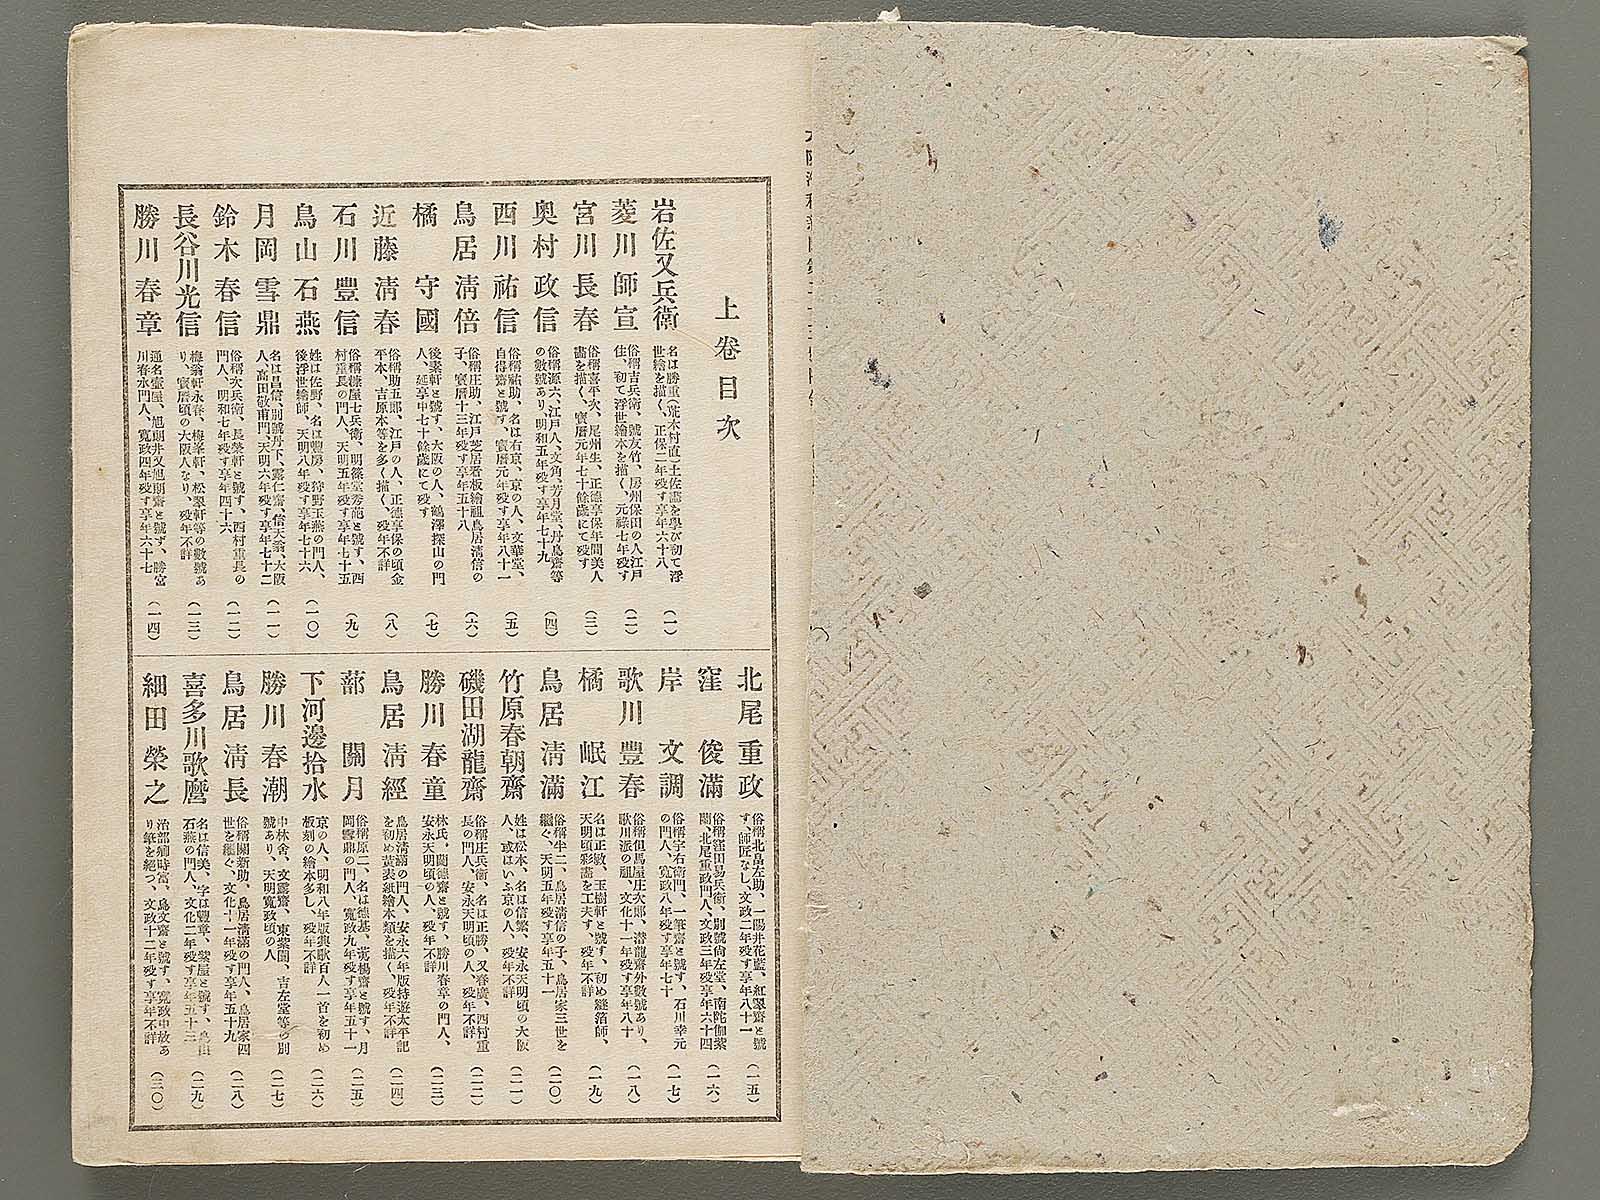 上卷目次
岩佐又兵衛 名は勝重(荒木村直)土佐畫を學び初て浮
世繪を描く、正保二年歿す享年六十八 (一)
菱川師宣 俗稱吉兵衛、號友竹、房州保田の人江戸
住、初て浮世繪本を描く、元祿七年歿す (二)
宮川長春 俗稱喜平次、尾州生、正德享保年間美人
畫を描く、寶曆元年七十餘歲にて歿す (三)
奧村政信 俗稱源六、江戸人、文角、芳月堂、丹鳥齋等
の數號あり、明和五年歿す享年七十九 (四)
西川祐信 俗稱祐助、名は右京、京の人、文華堂、
自得齋と號す、寶曆元年歿す享年八十一 (五)
鳥居淸倍 俗稱庄助、江戸芝居看板繪祖鳥居淸信の
子、寶曆十三年歿す享年五十八 (六)
橘守國 後素軒と號す、大阪の人、鶴澤探山の門
人、延享中七十餘歲にて歿す (七)
近藤淸春 俗稱助五郎、江戸の人、正德享保の頃金
平本、吉原本等を多く描く、歿年不詳 (八)
石川豐信 俗稱糠屋七兵衛、明篠堂秀葩と號す、西
村重長の門人、天明五年歿す享年七十五 (九)
鳥山石燕 姓は佐野、名は豐房、狩野玉燕の門人、
後浮世繪師、天明八年歿す享年七十六 (一〇)
月岡雪鼎 名は昌信、別號丹下、露仁齋、信天翁、大阪
人、高田敬甫門、天明六年歿す享年七十二 (一一)
鈴木春信 俗稱次兵衛、長榮軒と號す、西村重長の
門人、明和七年歿す享年四十六 (一二)
長谷川光信 梅翁軒永春、梅峯軒、松翠軒等の數號あ
り、寶曆頃の大阪人なり、歿年不詳 (一三)
勝川春章 通名壷屋、旭朗井又旭朗齋と號ず、勝宮
川春水門人、寬政四年歿す享年六十七 (一四)
北尾重政 俗稱北畠左助、一陽井花藍、紅翠齋と號
す、師匠なし、文政二年歿す享年八十一 (一五)
窪俊滿 俗稱窪田易兵衛、別號尙左堂、南陀伽紫
蘭、北尾重政門人、文政三年歿享年六十四 (一六)
岸文調 俗稱宇右衛門、一筆齋と號す、石川幸元
の門人、寬政八年歿す享年七十 (一七)
歌川豐春 俗稱但馬屋庄次郎、潜龍齋外數號あり、
歌川派の祖、文化十一年歿す享年八十 (一八)
橘岷江 名は正敏、玉樹軒と號す、初め縫箔師、
天明頃彩畫を工夫す、歿年不詳 (一九)
鳥居淸滿 俗稱半二、鳥居淸信の子、鳥居家三世を
繼ぐ、天明五年歿す享年五十一 (二〇)
竹原春朝齋 姓は松本、名は信繁、安永天明頃の大阪
人、或はいふ京の人、歿年不詳 (二一)
磯田湖龍齋 俗稱庄兵衛、名は正勝、又春廣、西村重
長の門人、安永天明頃の人、歿年不詳 (二二)
勝川春童 林氏、蘭德齋と號す、勝川春章の門人、
安永天明頃の人、歿年不詳 (二三)
鳥居淸經 鳥居淸滿の門人、安永六年版持遊太平記
を初め黃表紙繪本類を描く、歿年不詳 (二四)
蔀關月 俗稱原二、名は德基、荒楊齋と號す、月
岡雪鼎の門人、寬政九年歿す享年五十一 (二五)
下河邊拾水 京の人、明和八年版興歌百人一首を初め
板刻の繪本多し、歿年不詳 (二六)
勝川春潮 中林舍、文露齋、東紫園、吉左堂等の別
號あり、天明寬政頃の人 (二七)
鳥居淸長 俗稱關新助、鳥居淸滿の門人、鳥居家四
世を繼ぐ、文化十一年歿す享年五十九 (二八)
喜多川歌麿 名は信美、字は豐章、紫屋と號す、鳥山
石燕の門人、文化二年歿す享年五十三 (二九)
細田榮之 治部卿時富、鳥文齋と號す、寬政中故あ
り筆を絕つ、文政十二年歿す享年不詳 (三〇)